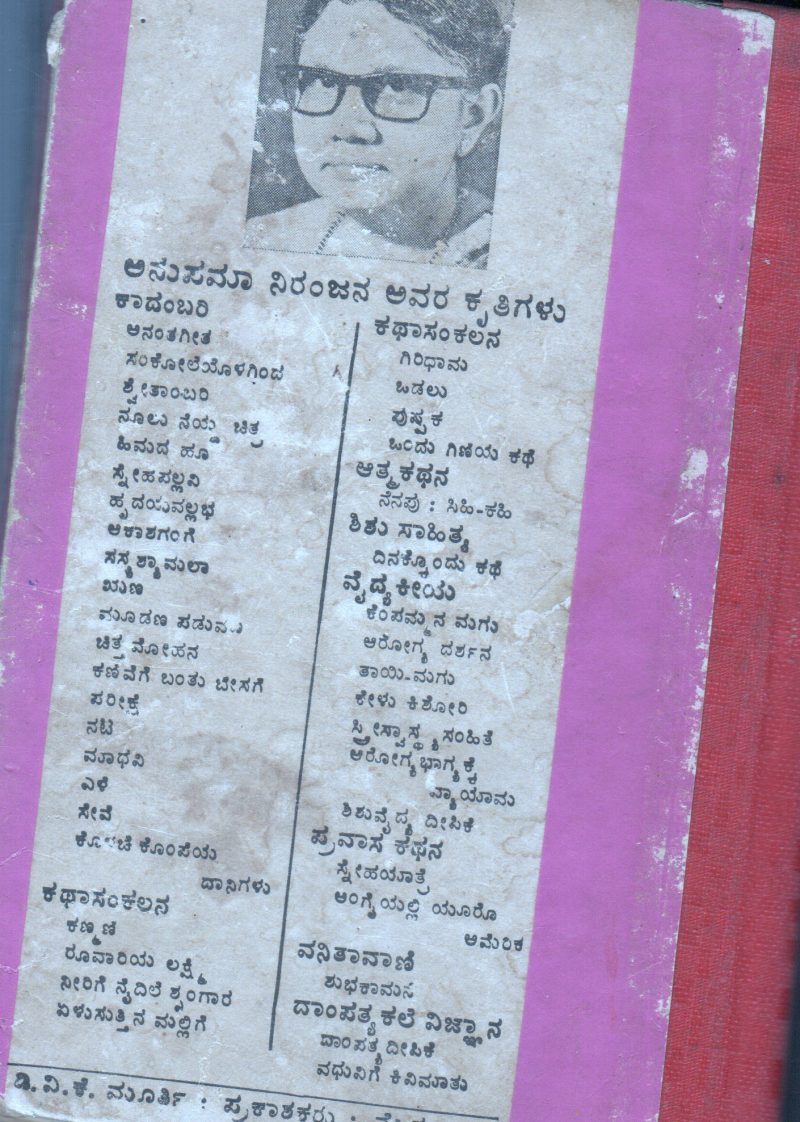 ಅನುಪಮಾ ನಿರಂಜನ ಅವರ ಕೃತಿಗಳು
ಕಾದಂಬರಿ
ಅನಂತಗೀತ
ಸಂಕೋಲೆಯೊಳಗಿಂದ
ಶ್ವೇತಾಂಬರಿ
ನೂಲು ನೆಯ್ದ ಚಿತ್ರ
ಹಿಮದ ಹೂ
ಸ್ನೇಹಪಲ್ಲವಿ
ಹೃದಯವಲ್ಲಭ
ಆಕಾಶಗಂಗೆ
ಸಸ್ಯಶ್ಯಾಮಲಾ
ಋಣ
ಮೂಡಣ ಪಡುವಣ
ಚಿತ್ತ ಮೋಹನ
ಕಣಿವೆಗೆ ಬಂತು ಬೇಸಗೆ
ಪರೀಕ್ಷೆ
ನಟಿ
ಮಾಧವಿ
ಎಳೆ
ಸೇವೆ
ಕೊಳಚೆ ಕೊಂಪೆಯ
ದಾನಿಗಳು
ಕಥಾಸಂಕಲನ
ಕಣ್ಮಣಿ
ರೂವಾರಿಯ ಲಕ್ಷ್ಮಿ
ನೀರಿಗೆ ನೈದಿಲೆ ಶೃಂಗಾರ
ಏಳುಸುತ್ತಿನ ಮಲ್ಲಿಗೆ
ಕಥಾಸಂಕಲನ
ಗಿರಿಧಾಮ
ಒಡಲು
ಪುಷ್ಪಕ
ಒಂದು ಗಿಣಿಯ ಕಥೆ
ಆತ್ಮಕಥನ
ನೆನಪು : ಸಿಹಿ-ಕಹಿ
ಶಿಶು ಸಾಹಿತ್ಯ
ದಿನಕ್ಕೊಂದು ಕಥೆ
ವೈದ್ಯಕೀಯ
ಕೆಂಪಮ್ಮನ ಮಗು
ಆರೋಗ್ಯ ದರ್ಶನ
ತಾಯಿ-ಮಗು
ಕೇಳು ಕಿಶೋರಿ
ಸ್ತ್ರೀಸ್ವಾಸ್ಥ್ಯಸಂಹಿತೆ
ಆರೋಗ್ಯಭಾಗ್ಯಕ್ಕೆ
ವ್ಯಾಯಾಮ
ಶಿಶುವೈದ್ಯ ದೀಪಿಕೆ
ಪ್ರವಾಸ ಕಥನ
ಸ್ನೇಹಯಾತ್ರೆ
ಅಂಗೈಯಲ್ಲಿ ಯೂರೊ
ಅಮೆರಿಕ
ವನಿತಾವಾಣಿ
ಶುಭಕಾಮನ
ದಾಂಪತ್ಯ ಕಲೆ ವಿಜ್ಞಾನ
ದಾಂಪತ್ಯ ದೀಪಿಕೆ
ವಧುವಿಗೆ ಕಿವಿಮಾತು
ಡಿ. ವಿ. ಕೆ. ಮೂರ್ತಿ : ಪ್ರಕಾಶಕರು :